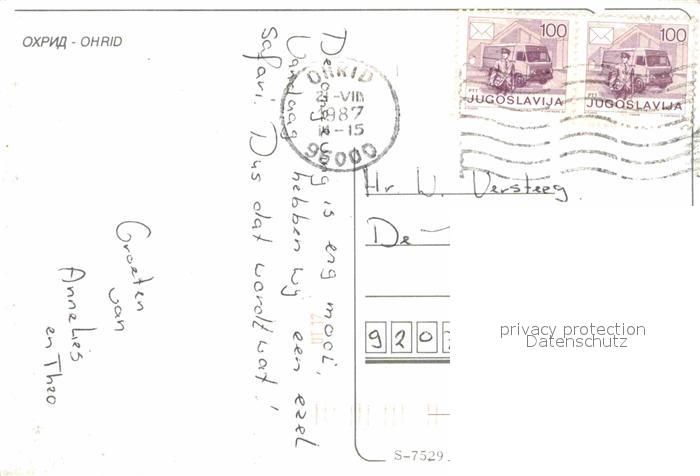 ОХРИД - OHRID
De omgeving is erg mooi,
Vandaag hebben wij een ezel
safari. Dus dat wordt wat!
Groeten
van
Annelies
en Theo
OHRID
21-VIII
1987
-15
96000
100
PTT
JUGOSLAVIJA
100
PTT
JUGOSLAVIJA
Hr. W. Versteeg
De
920
privacy protection
Datenschutz
S-7529